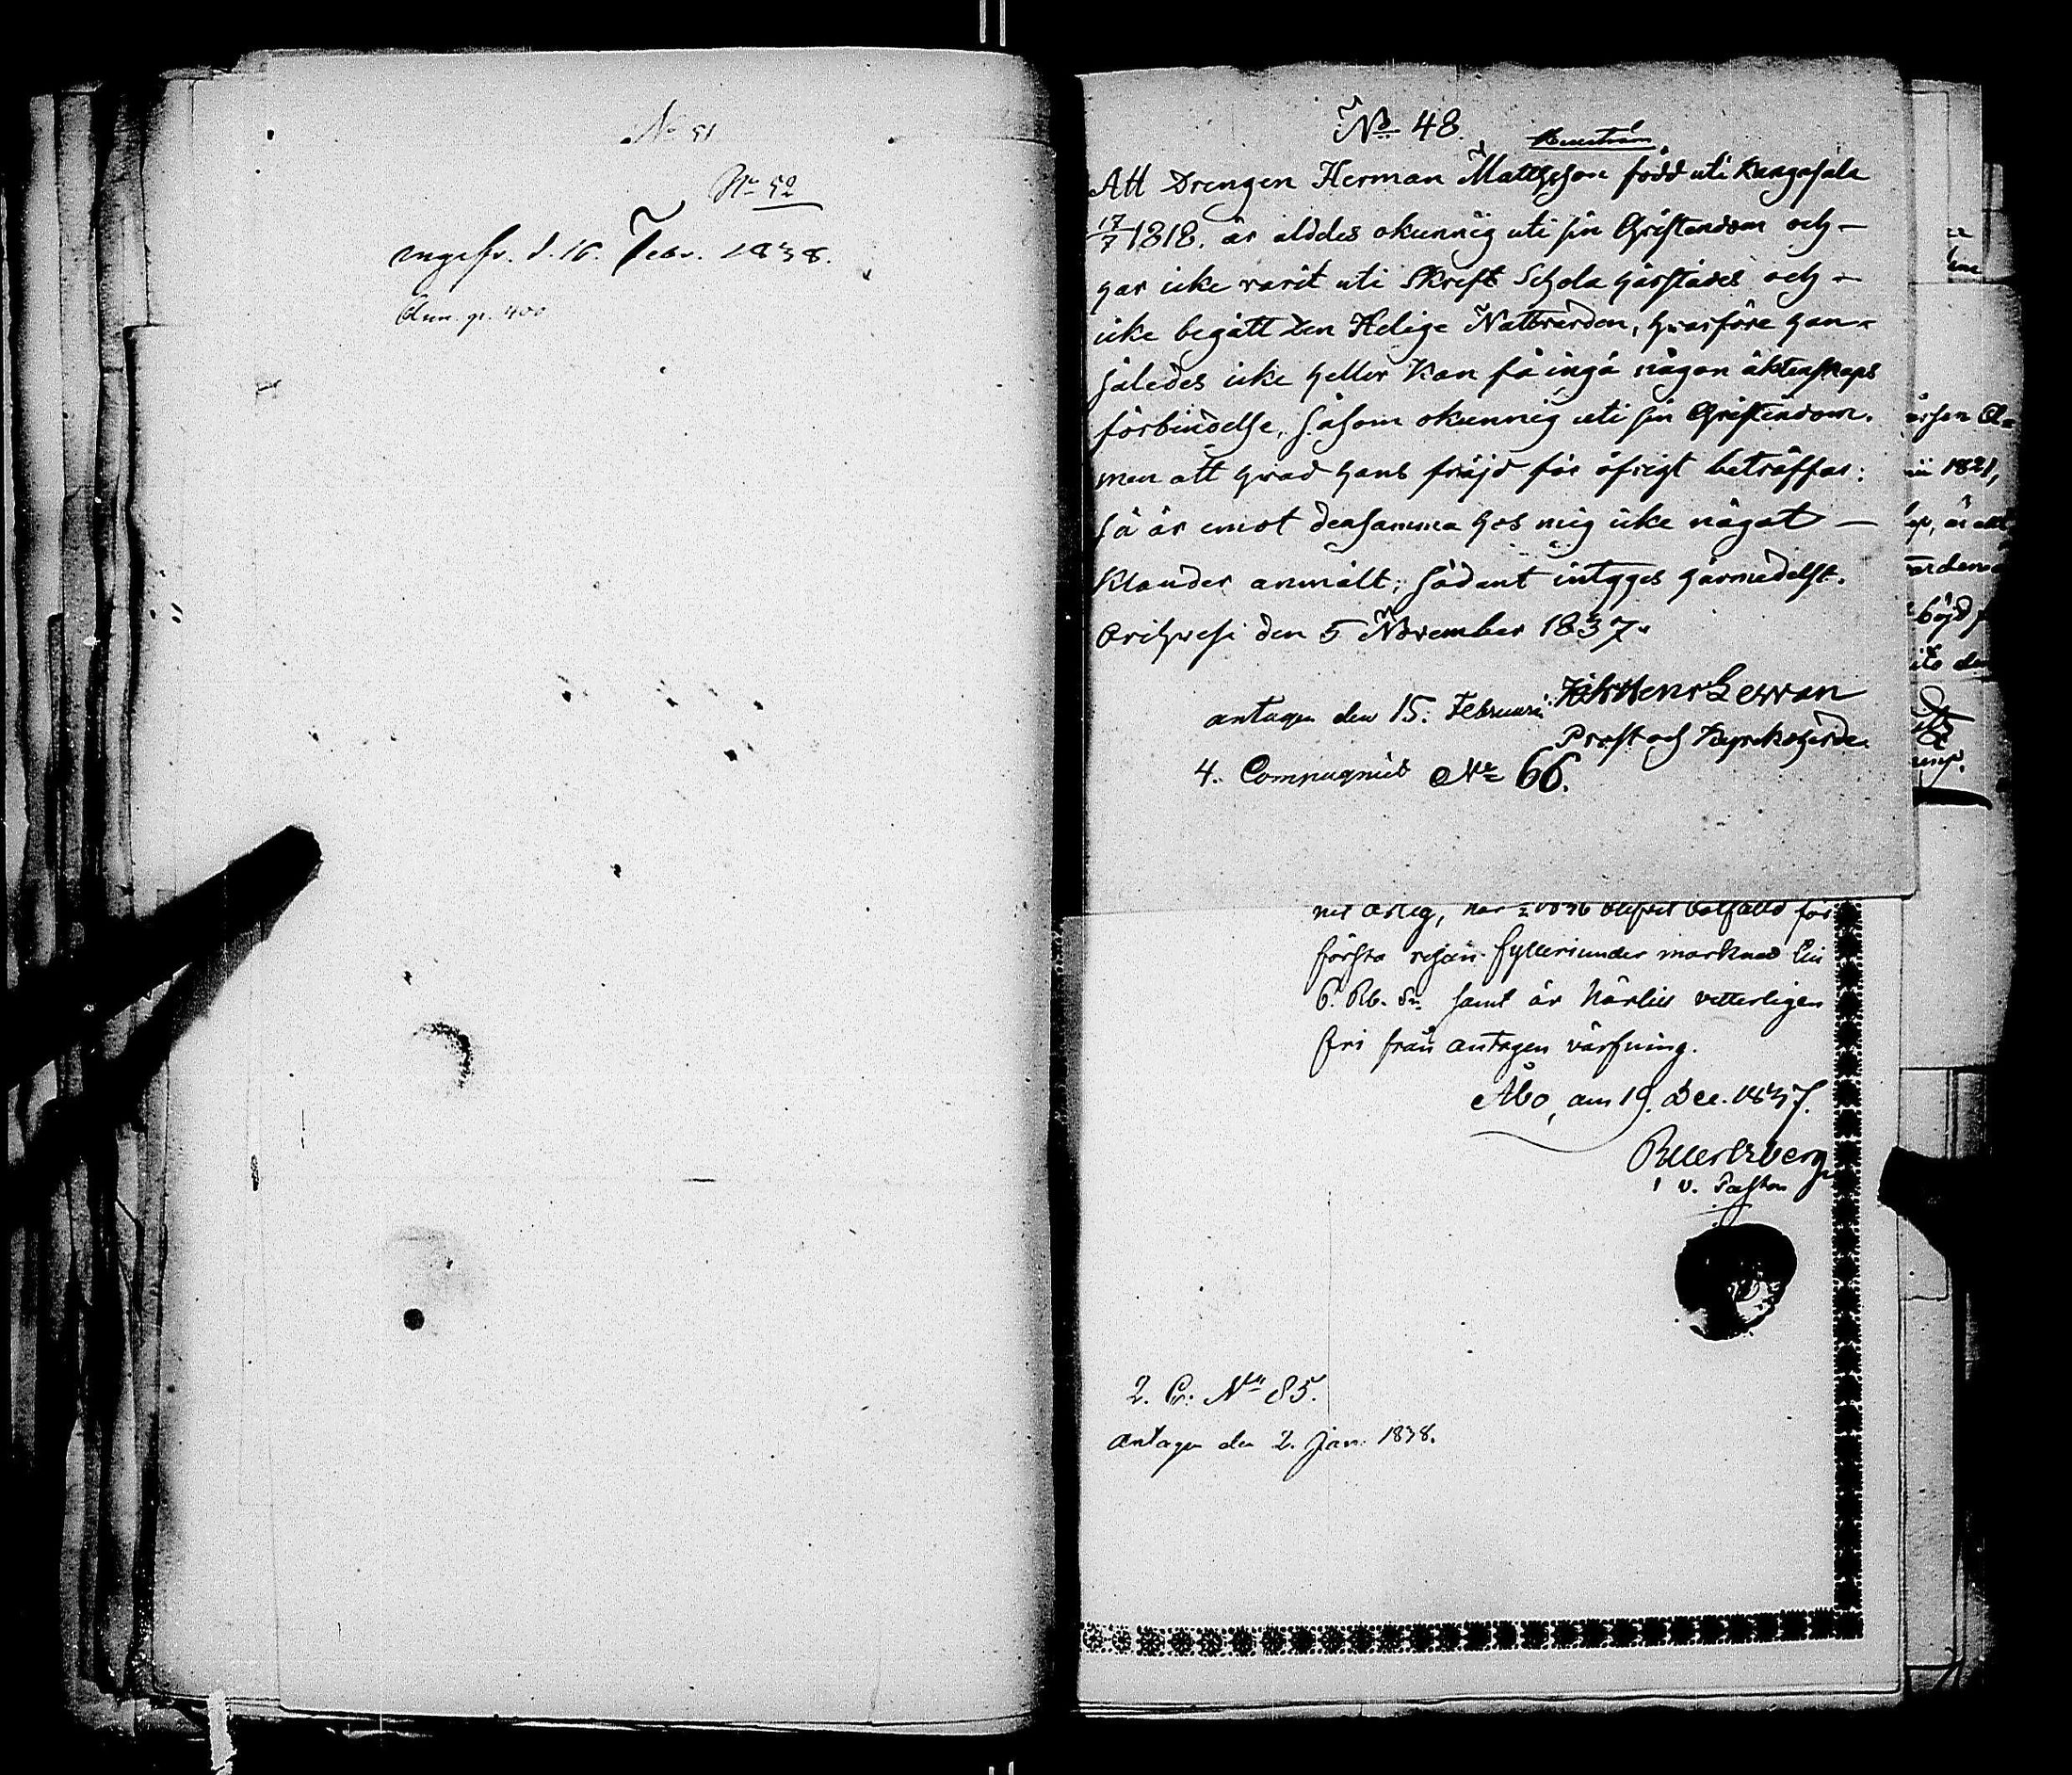 No 51
No 52
d. 16. Febr. 1838.
Ann. p. 400
No 48.
Att Drengen Herman Mattsson född uti Kangasala
17/7 1818. är alldes okunnig uti sin Christendom och -
har icke varit uti Skrift Schola härstädes och -
icke begått den Helige Nattvarden, hvarföre han -
således icke heller kan få ingå någon äktenskaps
förbindelse, såsom okunnig uti sin Christendom.
men att hvad hans fräjd för öfrigt beträffar:
så är emot densamma hos mig icke något -
klander anmält; sådant intyges härmedelst.
Orihvesi den 5 November 1837.
antagen den 15. Februari
Prost och Kyrkoherde.
4. Compagniet No 66.
första resan fylleri under marknad
6. Rb. samt är härlil vetterligen
fri från antagen värfning.
Åbo, am 19. Dec. 1837.
v. Pastor
2. C: No 85.
Antagen den 2. Jan. 1838.
1821,